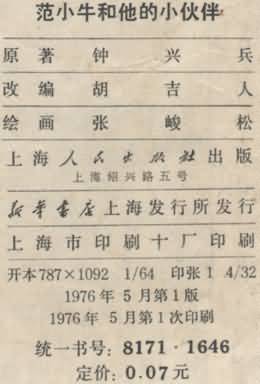 范小牛和他的小伙伴
原著 钟兴兵
改编 胡吉人
绘画 张峻松
上海人民出版社出版
上海绍兴路五号
新华书店上海发行所发行
上海市印刷十厂印刷
开本787×1092 1/64 印张1 4/32
1976年5月第1版
1976年5月第1次印刷
统一书号：8171·1646
定价：0.07元